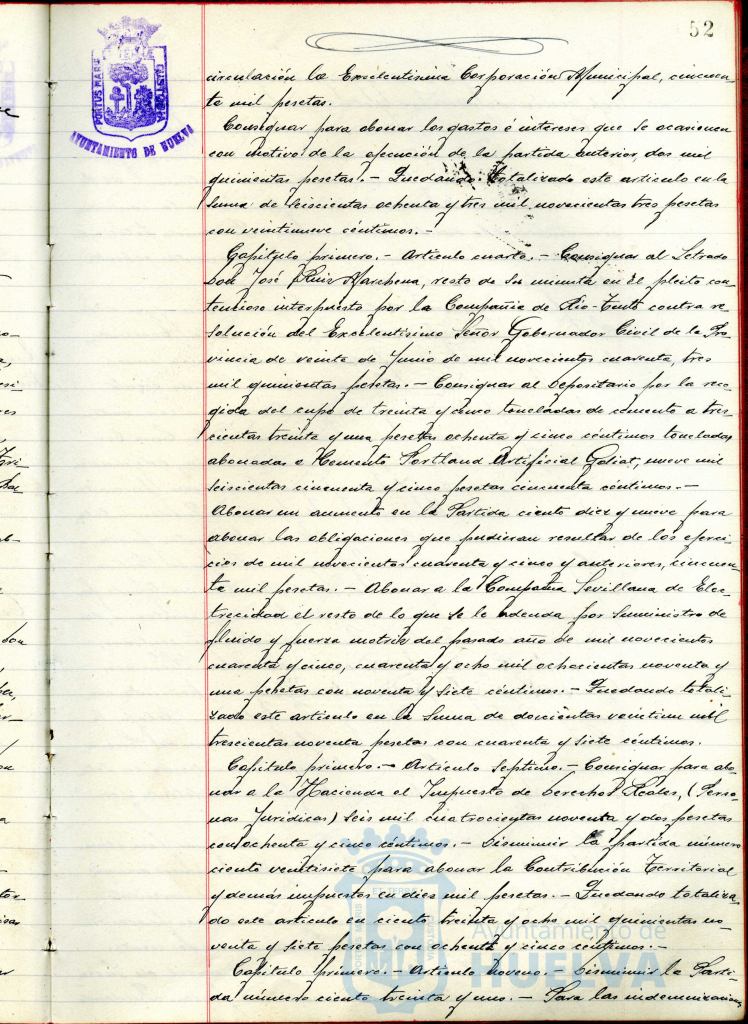 52
PORTUS MARIS ET TERRAE CUSTODIA
AYUNTAMIENTO DE HUELVA
circulación la Excelentísima Corporación Municipal, cincuen-
ta mil pesetas.
Consignar para abonar los gastos é intereses que se ocasionen
con motivo de la ejecución de la partida anterior, dos mil
quinientas pesetas.- Quedando totalizado este artículo en la
suma de seiscientas ochenta y tres mil novecientas tres pesetas
con veintinueve céntimos.-
Capítulo primero.- Artículo cuarto.- Consignar al Letrado
Don José Ruiz Marchena, resto de su minuta en el pleito con-
tencioso interpuesto por la Compañía de Rio-Tinto contra re-
solución del Excelentísimo Señor Gobernador Civil de la Pro-
vincia de veinte de Junio de mil novecientos cuarenta, tres
mil quinientas pesetas.- Consignar al Depositario por la reco-
gida del cupo de treinta y cinco toneladas de cemento a tres-
cientas treinta y una pesetas ochenta y cinco céntimos tonelada
abonadas a Cemento Portland Artificial Goliat, nueve mil
seiscientas cincuenta y cinco pesetas cincuenta céntimos.-
Abonar un aumento en la Partida ciento diez y nueve para
abonar las obligaciones que pudieran resultar de los ejerci-
cios de mil novecientos cuarenta y cinco y anteriores, cincuen-
ta mil pesetas.- Abonar a la Compañía Sevillana de Elec-
trecidad el resto de lo que se le adeuda por suministro de
fluido y fuerza motriz del pasado año de mil novecientos
cuarenta y cinco, cuarenta y ocho mil ochocientas noventa y
una pesetas con noventa y siete céntimos.- Quedando totali-
zado este artículo en la suma de doscientas veintiun mil
trescientas noventa pesetas con cuarenta y siete céntimos.
Capítulo primero.- Artículo septimo.- Consignar para abo-
nar a la Hacienda el Impuesto de Derechos Reales, (Perso-
nas Jurídicas) seis mil cuatrocientas noventa y dos pesetas
con ochenta y cinco céntimos.- Disminuir la partida número
ciento veintisiete para abonar la Contribución Territorial
y demás impuestos en diez mil pesetas.- Quedando totaliza-
do este artículo en ciento treinta y ocho mil quinientas no-
venta y siete pesetas con ochenta y cinco céntimos.-
Capítulo primero.- Artículo noveno.- Disminuir la Parti-
da número ciento treinta y uno.- Para las indemnizaciones
Ayuntamiento de
HUELVA